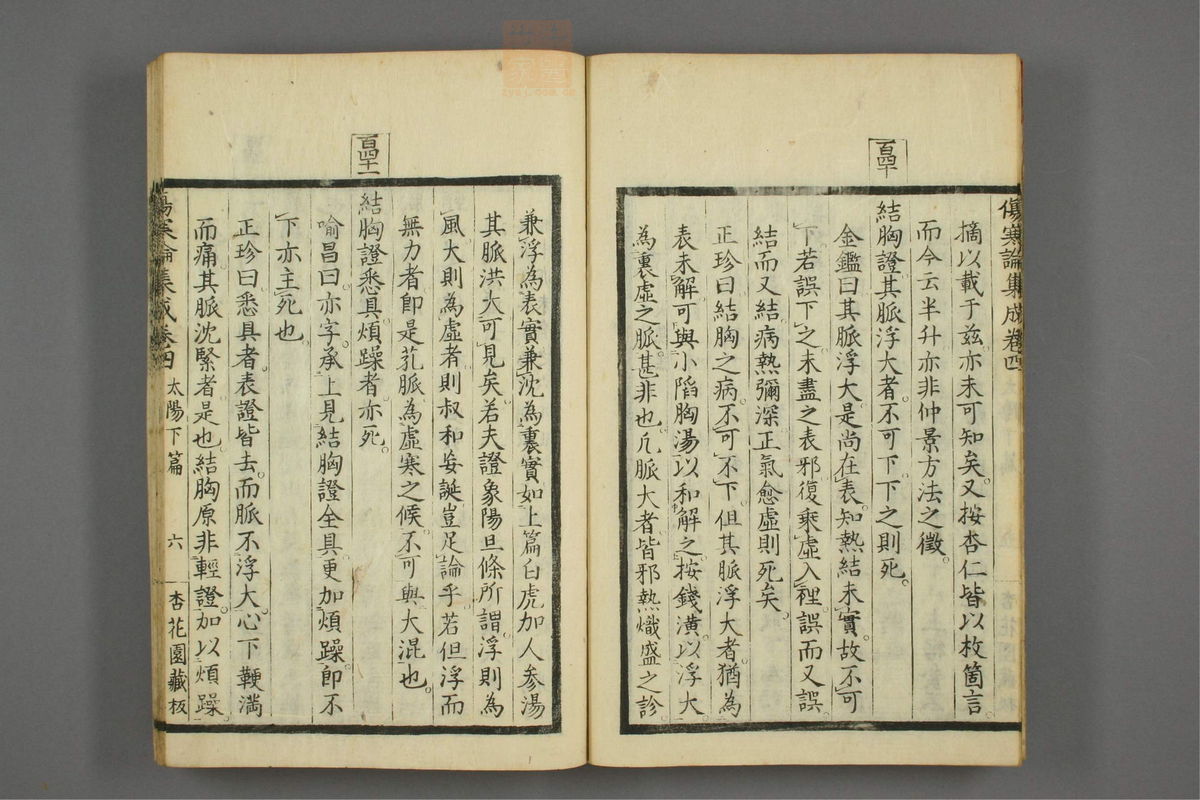 傷寒論集成卷四
百四十
摘以載于玆亦未可知矣。又按杏仁皆以枚箇言
而今云半升亦非仲景方法之徵。
結胸證其脈浮大者。不可下。下之則死。
金鑑曰其脈浮大。是尚在表。知熱結未實。故不可
下。若誤下之。未盡之表邪復乘虛入裡。誤而又誤
結而又結。病熱彌深。正氣愈虛。則死矣。
正珍曰結胸之病。不可不下。但其脈浮大者。猶為
表未解。可與小陷胸湯以和解之。按錢潢以浮大
為裏虛之脈。甚非也。凡脈大者。皆邪熱熾盛之診
百四十一
兼浮為表實。兼沈為裏實。如上篇白虎加人參湯
其脈洪大。可見矣。若夫證象陽旦條所謂浮則為
風。大則為虛者。則叔和妄誕。豈足論乎。若但浮而
無力者。即是芤脈。為虛寒之候。不可與大混也。
結胸證悉具。煩躁者。亦死。
喻昌曰。亦字。承上見結胸證全具。更加煩躁。即不
下亦主死也。
正珍曰悉具者。表證皆去。而脈不浮大。心下鞕滿
而痛。其脈沈緊者是也。結胸原非輕證。加以煩躁。
傷寒論集成卷四 太陽下篇 六 杏花園藏板